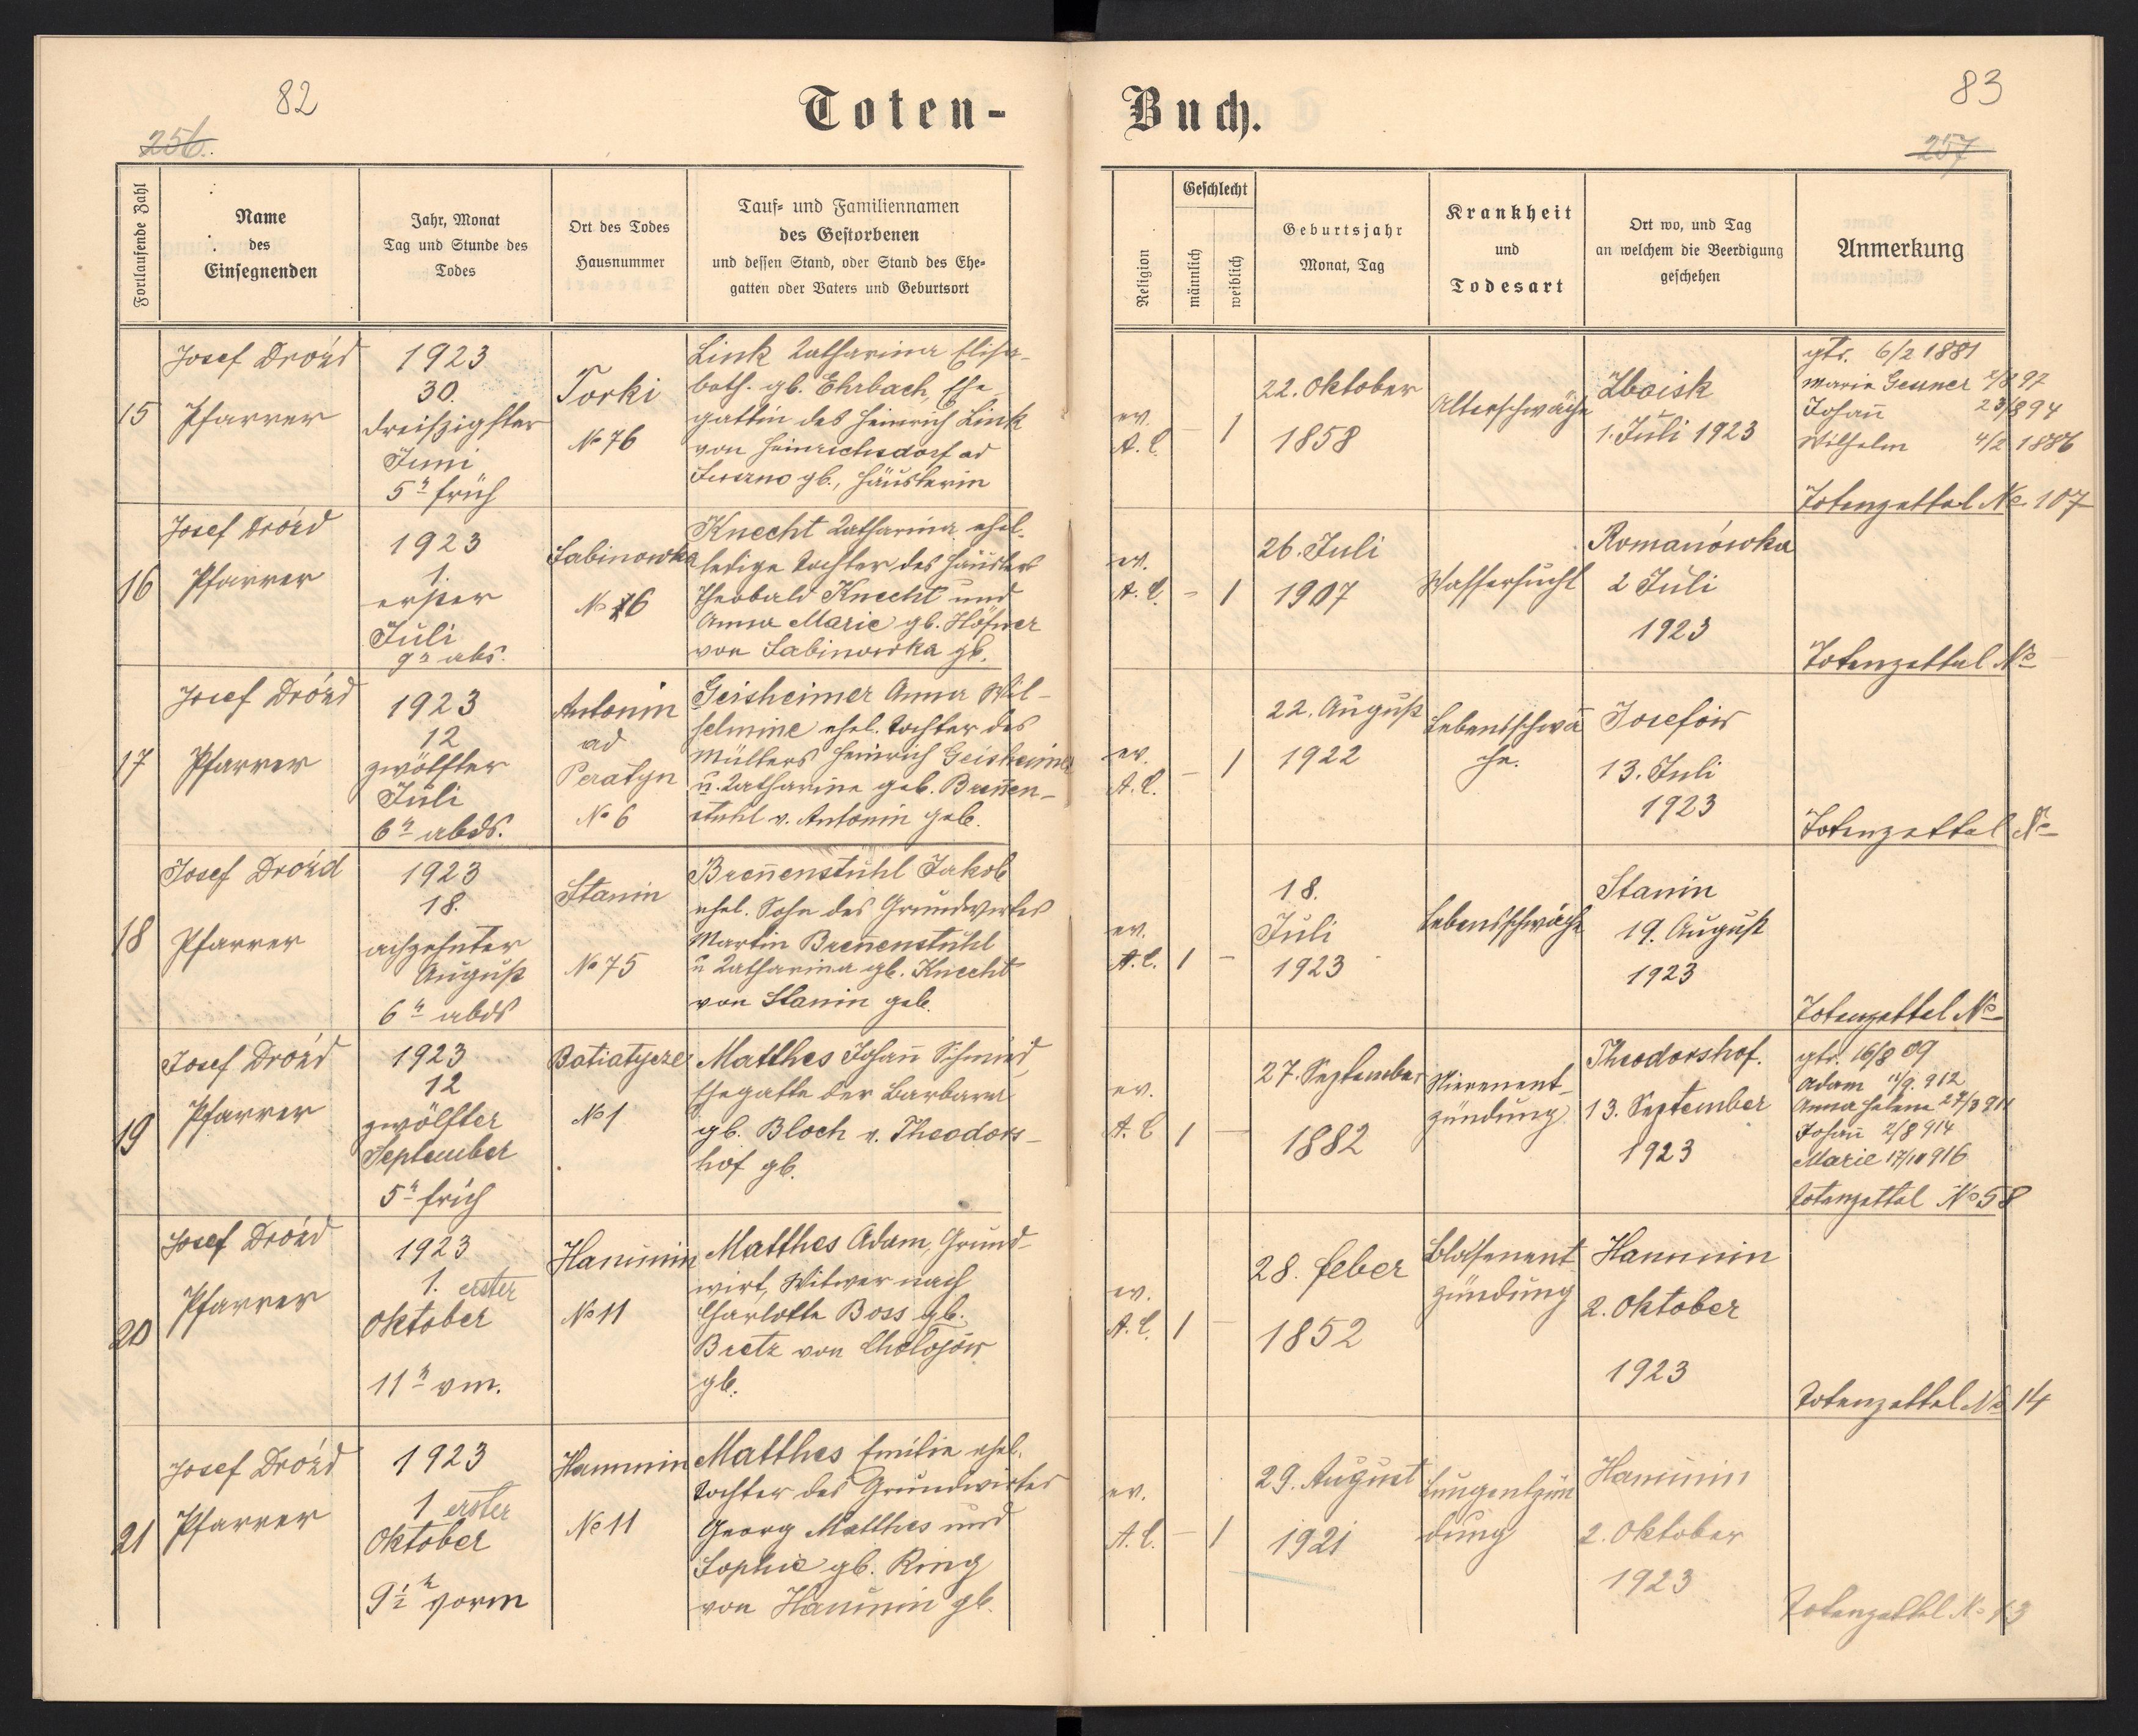 82
256.
Toten-
Fortlaufende Zahl
Name
des
Einsegnenden
Jahr, Monat
Tag und Stunde des
Todes
Ort des Todes
Hausnummer
Tauf- und Familiennamen
des Gestorbenen
und dessen Stand, oder Stand des Ehe-
gatten oder Vaters und Geburtsort
15
Josef Drożd
Pfarrer
1923
30.
dreißigster
Juni
5 h früh
Torki
No 76
Link Katharina Elisa-
beth. gb. Ehrbach, Ehe
gattin des Heinrich Link
von Heinrichsdorf ad
gb., Häuslerin
16
Josef Drożd
Pfarrer
1923
1.
erster
Juli
9 h abs.
Sabinowka
No 76
Knecht Katharina ehel.
ledige Tochter des Häuslers
Theobald Knecht und
Anna Marie gb. Höfner
von Sabinowka gb.
17
Josef Drożd
Pfarrer
1923
12
zwölfter
Juli
6 h abds.
Antonin
ad
Peratyn
No 6
Geisheimer Anna Wil-
helmine ehel. Tochter des
Müllers Heinrich Geisheimer
u. Katharina geb. Breñen-
stuhl v. Antonin geb.
18
Josef Drożd
Pfarrer
1923
18.
achzehnter
August
6 h abds
Stanin
No 75
Breñenstuhl Jakob
ehel. Sohn des Grundwirtes
Martin Breñenstuhl
u Katharina gb. Knecht
von Stanin geb.
19
Josef Drożd
Pfarrer
1923
12
zwölfter
September
5 h früh
Batiatycze
No 1
Matthes Johañ Schmied,
Ehegatte der Barbara
gb. Bloch v. Theodors-
hof gb.
20
Josef Drożd
Pfarrer
1923
1. erster
Oktober
11 h vm.
Hanunin
No 11
Matthes Adam, Grund-
wirt, Witwer nach
Charlotte Boss gb.
Bretz von Cholojów
gb.
21
Josef Drożd
Pfarrer
1923
1 erster
Oktober
9½ h vorm
Hanunin
No 11
Matthes Emilie ehel.
Tochter des Grundwirtes
Georg Matthes und
Sophie gb. Ring
von Hanunin gb.
83
257
Buch.
Religion
Geschlecht
männlich
weiblich
Geburtsjahr
Monat, Tag
Krankheit
und
Todesart
Ort wo, und Tag
an welchem die Beerdigung
geschehen
Anmerkung
ev.
A. C.
– 1
22. Oktober
1858
Altersschwäche
Zboisk
1. Juli 1923
gtr. 6/2 1881
Maria Gesuner 2/8 97
Johañ 23/8 94
Wilhelm 4/2 1886
Totenzettel No 107
ev.
A. C.
– 1
26. Juli
1907
Wassersucht
Romanówka
2 Juli
1923
Totenzettel No
ev.
A. C.
– 1
22. August
1922
Lebensschwä
che.
Josefów
13. Juli
1923
Totenzettel No
ev.
A. C.
1 –
18.
Juli
1923
Lebensschwäche
Stanin
19. August
1923
Totenzettel No
ev.
A. C
1 –
27. September
1882
Nierenent-
zündung
Theodorshof.
13. September
1923
gtr. 16/8 09
Adam 11/9. 912
Anna Helene 27/3 911
Johañ 2/8 914
Marie 17/10 916
Totenzettel No 58
ev.
A. C.
1 –
28. Feber
1852
Blasenent
zündung
Hanunin
2. Oktober
1923
Totenzettel No 14
ev.
A. C.
– 1
29. August
1921
Lungentzün
dung
Hanunin
2. Oktober
1923
Totenzettel No 13